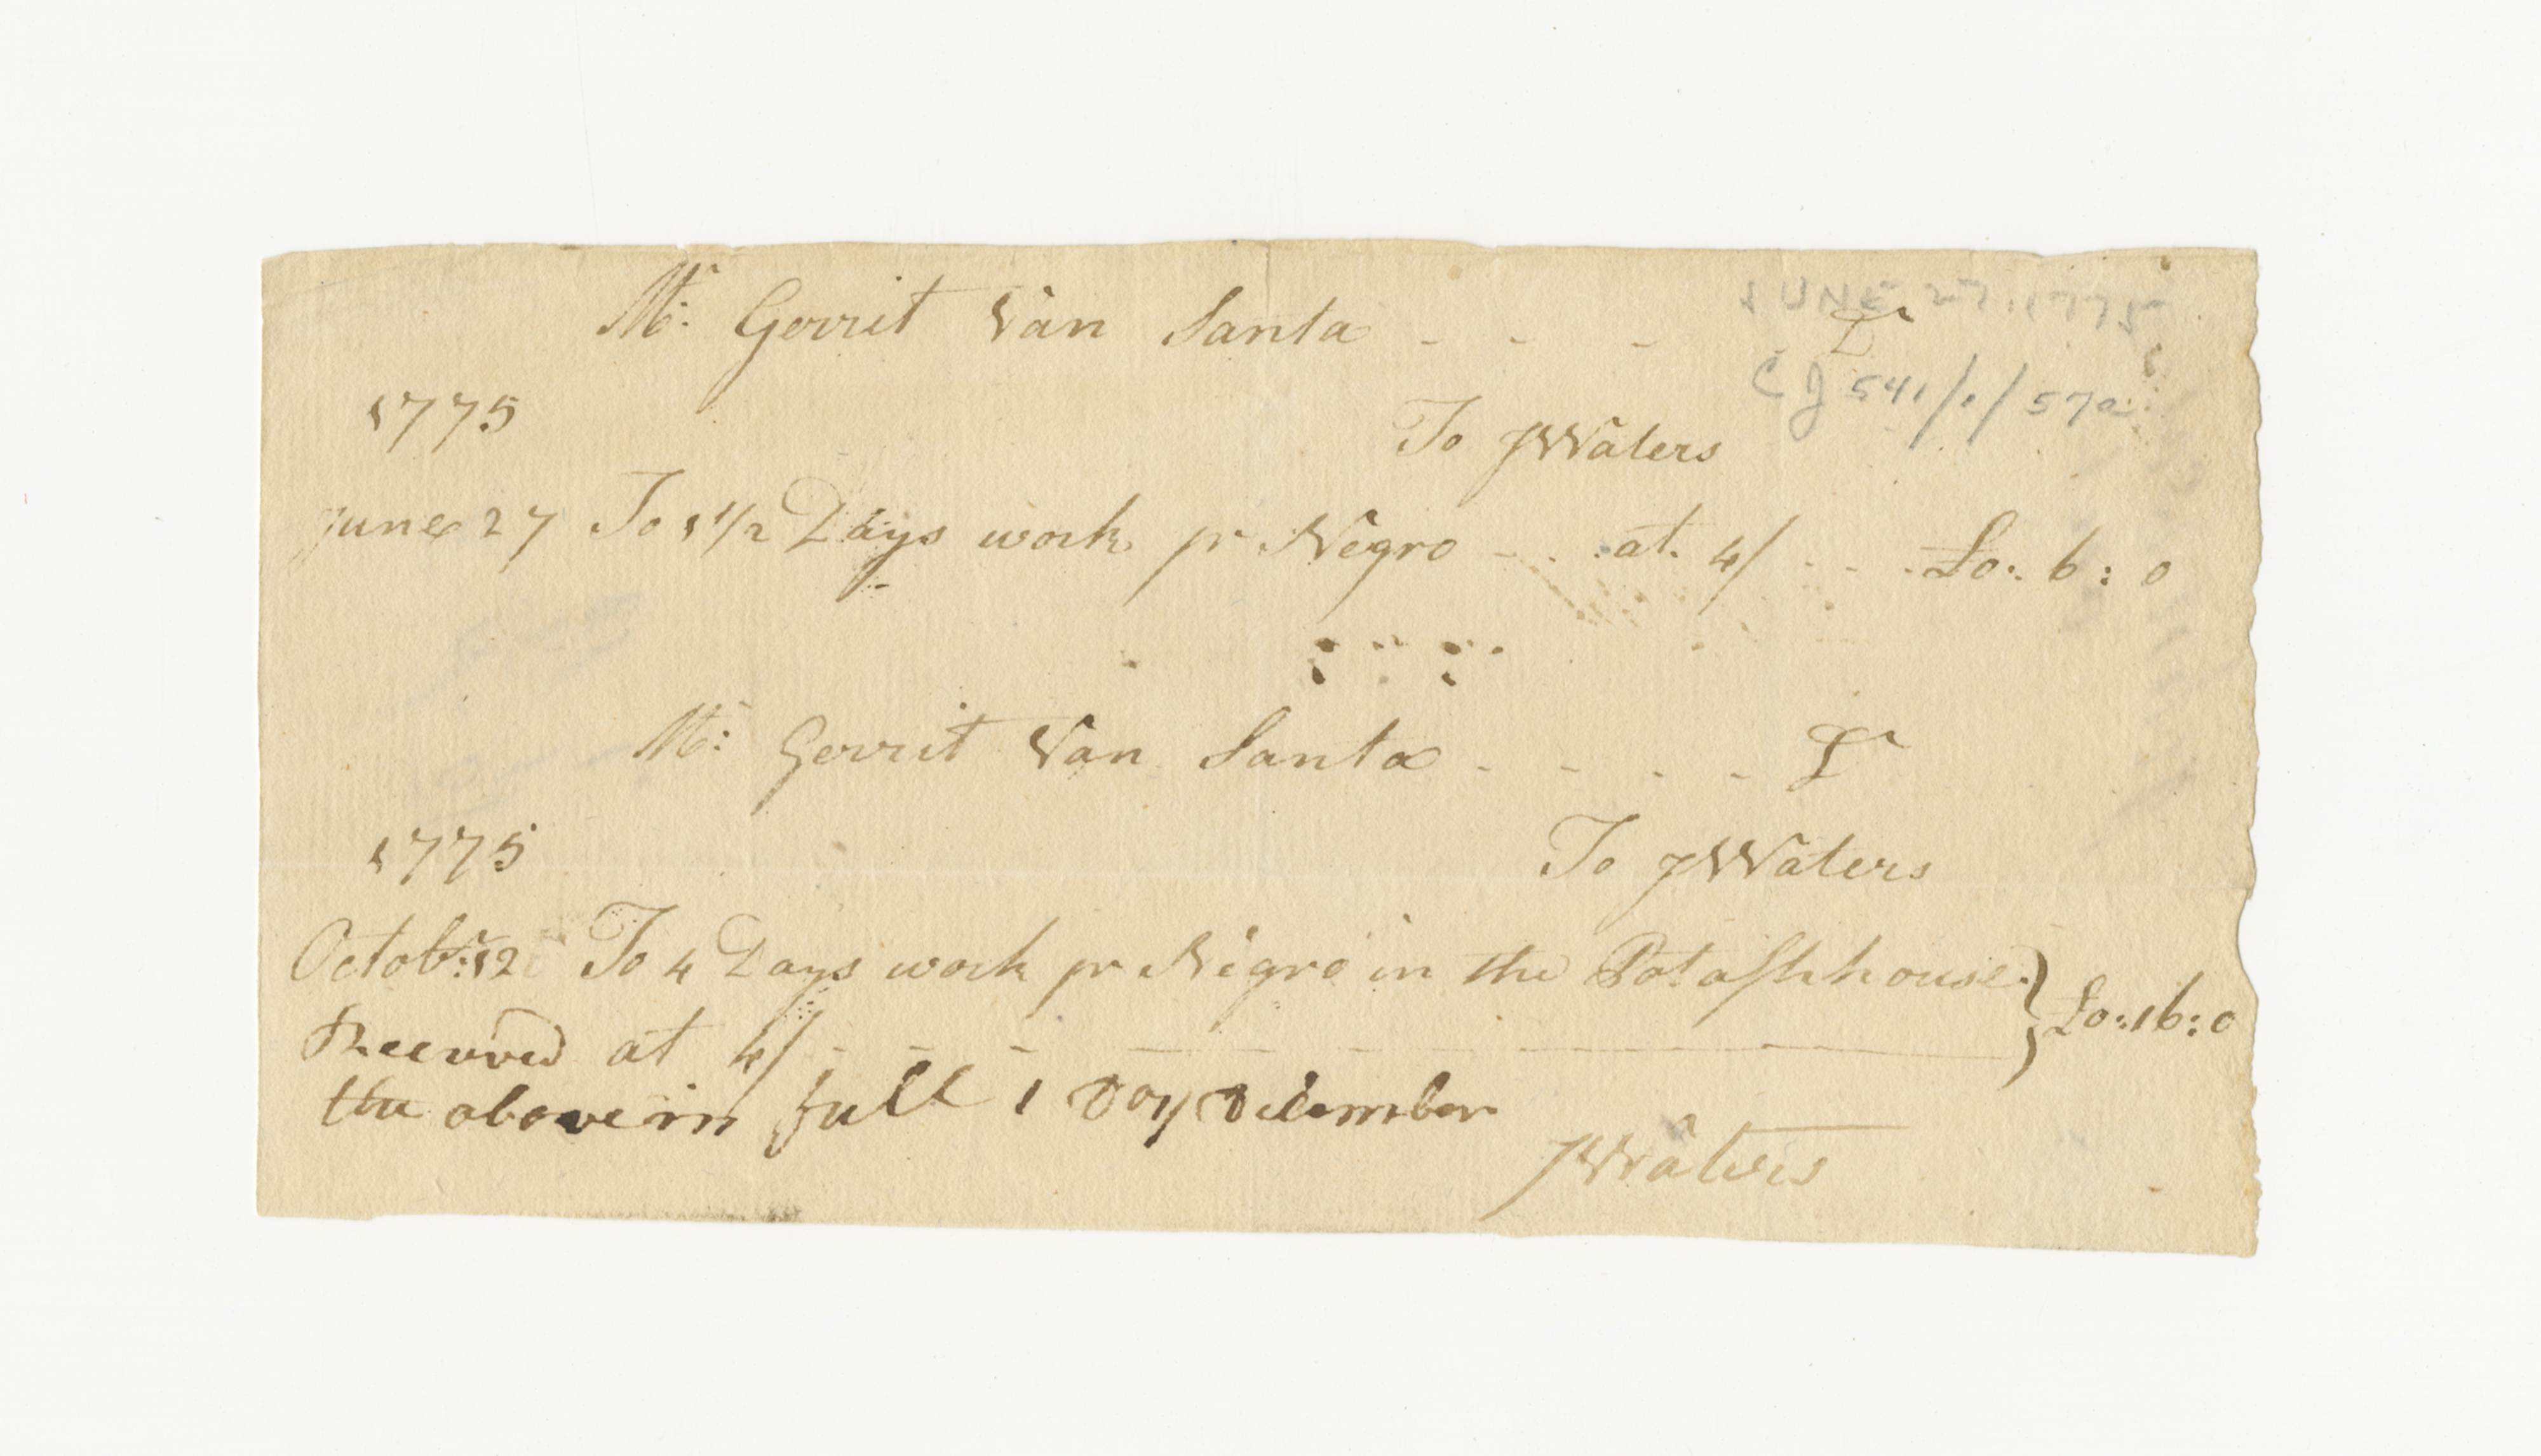 Mr. Gerrit Van Santa - - - - Dr
JUNE 27, 1775
CJ 541/1/572
1775 To JWaters
June 27 To 1 1/2 Days work pr Negro - - . at 4/ - - - £0:. 6: 0
Mr: Gerrit Van Santa - - - - Dr
1775 To JWaters
Octobr: 12 To 4 Days work pr Negro in the Potashhouse } £0:16:0
Received at 4/ - - -
the above in full 1 Day December
JWaters